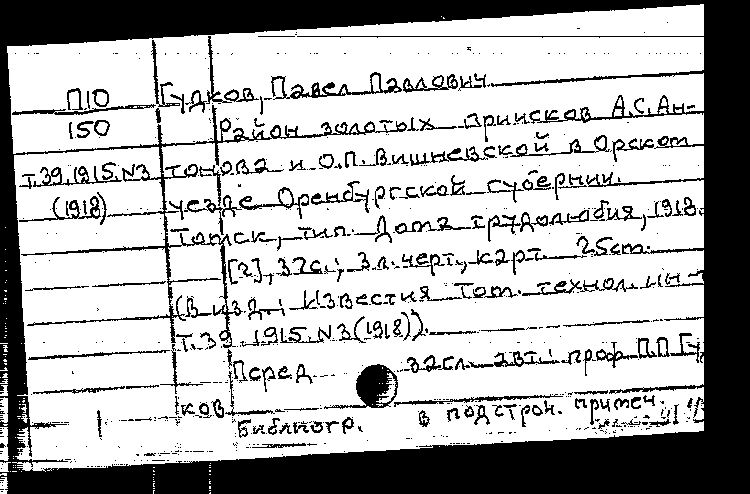 П10 Гудков, Павел Павлович.
150 Район золотых приисков А.С.Ан-
Т.39.1915.N3 тонова и О.П.Вишневской в Орском
(1918) уезде Оренбургской губернии.
Томск, тип. Дома трудолюбия, 1918.
[2], 37с.; 3л.черт., карт. 25см.
(В изд.: Известия Том. технол. ин-т
Т.39 1915.N3(1918)).
Перед загл. авт.: проф П.П.Гу
ков
Библиогр. в подстроч. примеч.